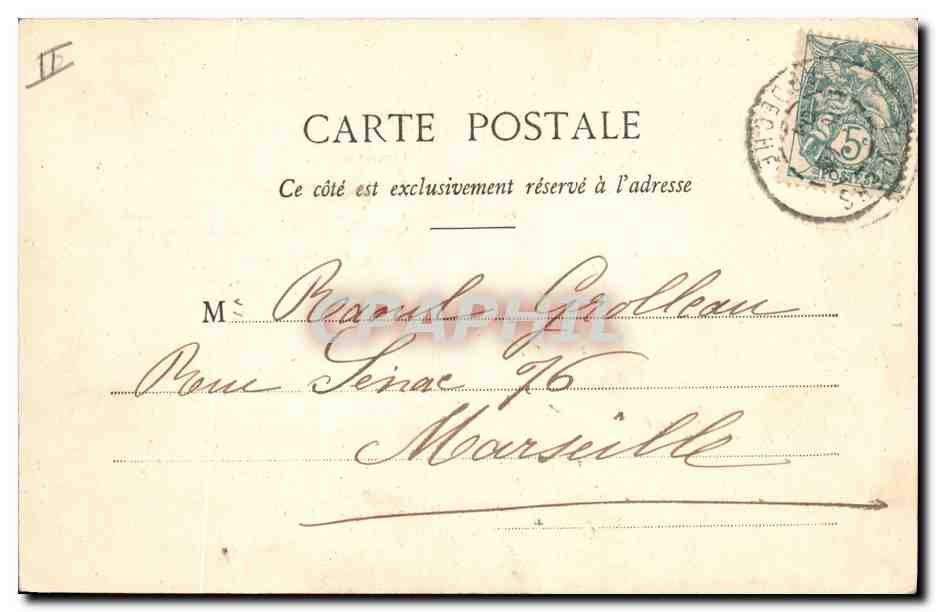 II
CARTE POSTALE
Ce côté est exclusivement réservé à l'adresse
5c
POSTES
Mr Raoul Grolleau
Rue Sénac 76
Marseille
CPAPHIL